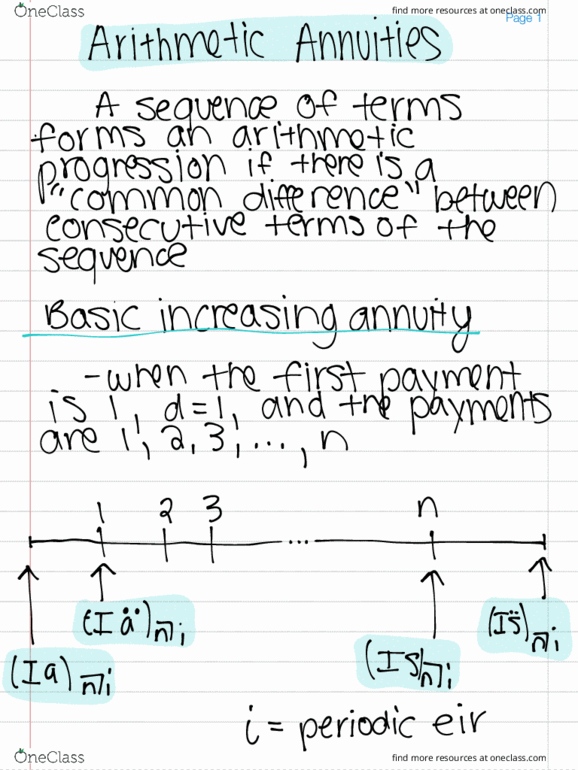 OneClass
find more resources at oneclass.com
Page 1
Arithmetic Annuities
A sequence of terms
forms an arithmetic
progression if there is a
"common difference" between
consecutive terms of the
sequence
Basic increasing annuity
-when the first payment
is 1, d=1, and the payments
are 1, 2, 3, ..., n
1 2 3 n
...
(Iä)n̅|i
(Is̈)n̅|i
(Ia)n̅|i
(Is)n̅|i
i = periodic eir
OneClass
find more resources at oneclass.com